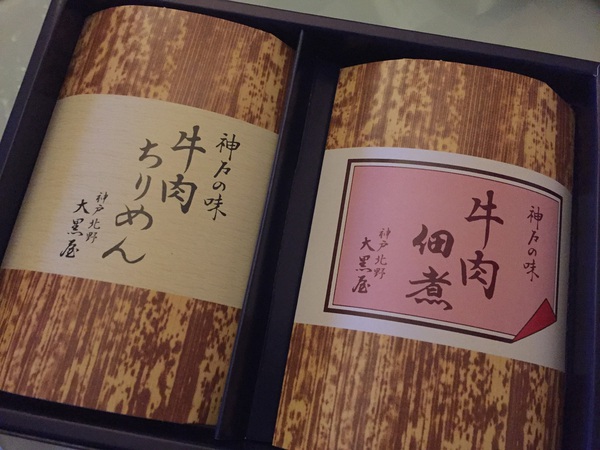 神戸の味
牛肉
ちりめん
神戸北野
大黒屋
神戸の味
牛肉
佃煮
神戸北野
大黒屋